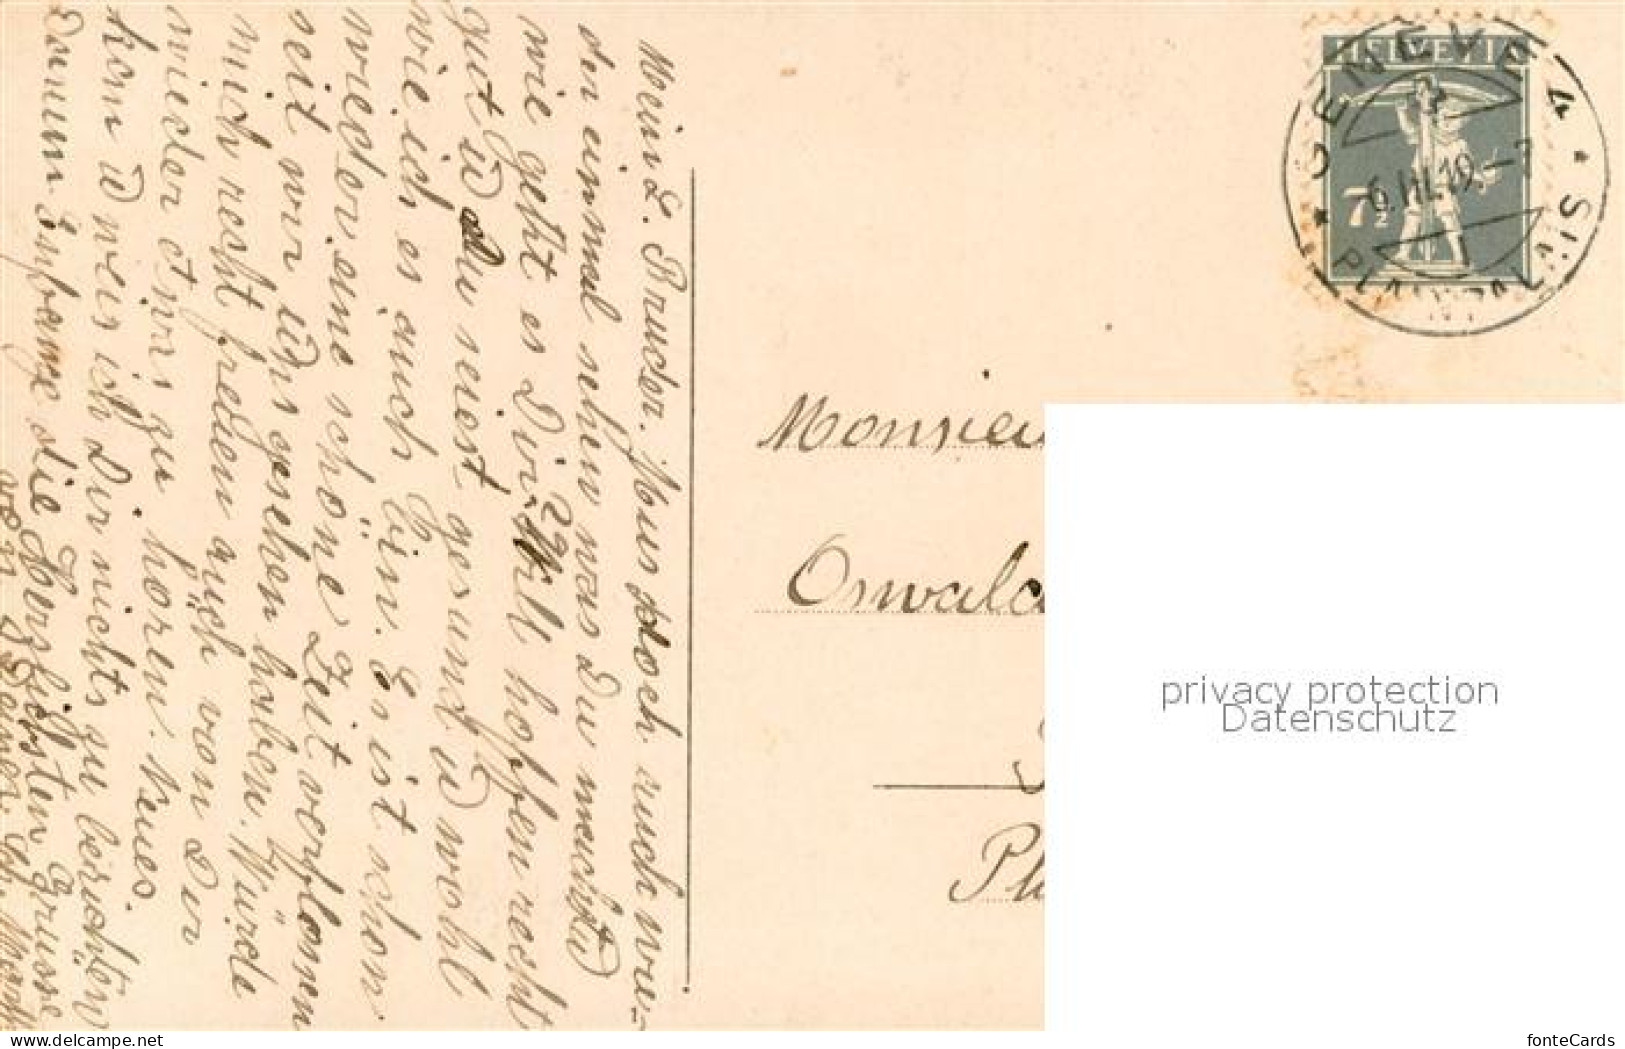 Mein L. Bruder. Mus doch auch wie-
der einmal sehen was Du machst
wie geht es Dir. Will hoffen recht
gut u Du seiest gesund u wohl
wie ich es auch bin. Es ist schon
wieder eine schöne Zeit verflossen
seit wir uns gesehen haben. Würde
mich recht freuen auch von Dir
wieder etwas zu hören. Neues
kan u weis ich Dir nichts zu berichten
Darum Empfange die Herzlichsten Grüsse
von
HELVETIA
7½
GENEVE 4
6.III.19.
PLAINPALAIS
Monsieu
Oswald
Pl
privacy protection
Datenschutz
www.delcampe.net
fonteCards